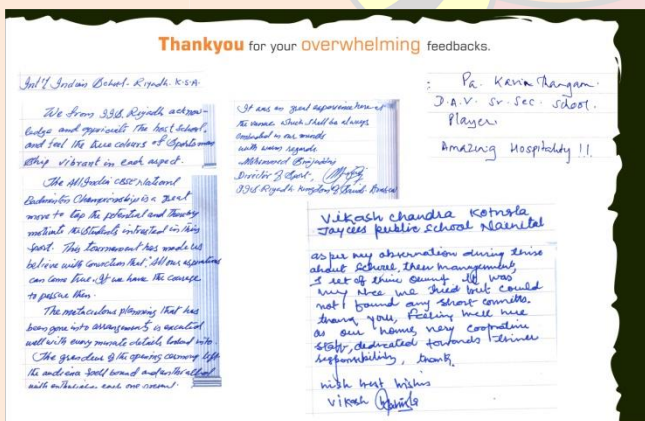 Thankyou for your overwhelming feedbacks.
Int'l Indian School - Riyadh. K.S.A.
We from IIS, Riyadh acknow-
ledge and appreciate the host school,
and feel the true colours of Sportsman
ship vibrant in each aspect.
The All India CBSE National
Badminton Championship is a great
move to tap the potential and thereby
motivate the students intrested in this
sport. This tournament has made us
believe with conviction that, "All our aspirations
can come true, If we have the courage
to persue them.
The metaculous planning that has
been gone into arrangements is excuted
well with every minute details looked into.
The grandeur of the opening ceremony left
the audience spell bound and enthralled
with enthusiasm each one present.
It was an great experience here at
the venue which shall be always
embedded in our minds
with warm regards.
Mohammed
Director of Sport,
IIS Riyadh Kingdom of Saudi Arabia
Pa. Kavin Thangam.
D.A.V. Sr. Sec. School.
Player.
Amazing Hospitality !!!
Vikash Chandra Kotnala
Jaycees public School Nainital
as per my observation during
about School, their management,
I
very nice we tried but could
not found any short
thank you, feeling well here
as our home, very
staff, dedicated towards
responsibility, thank,
with best wishes
Vikash